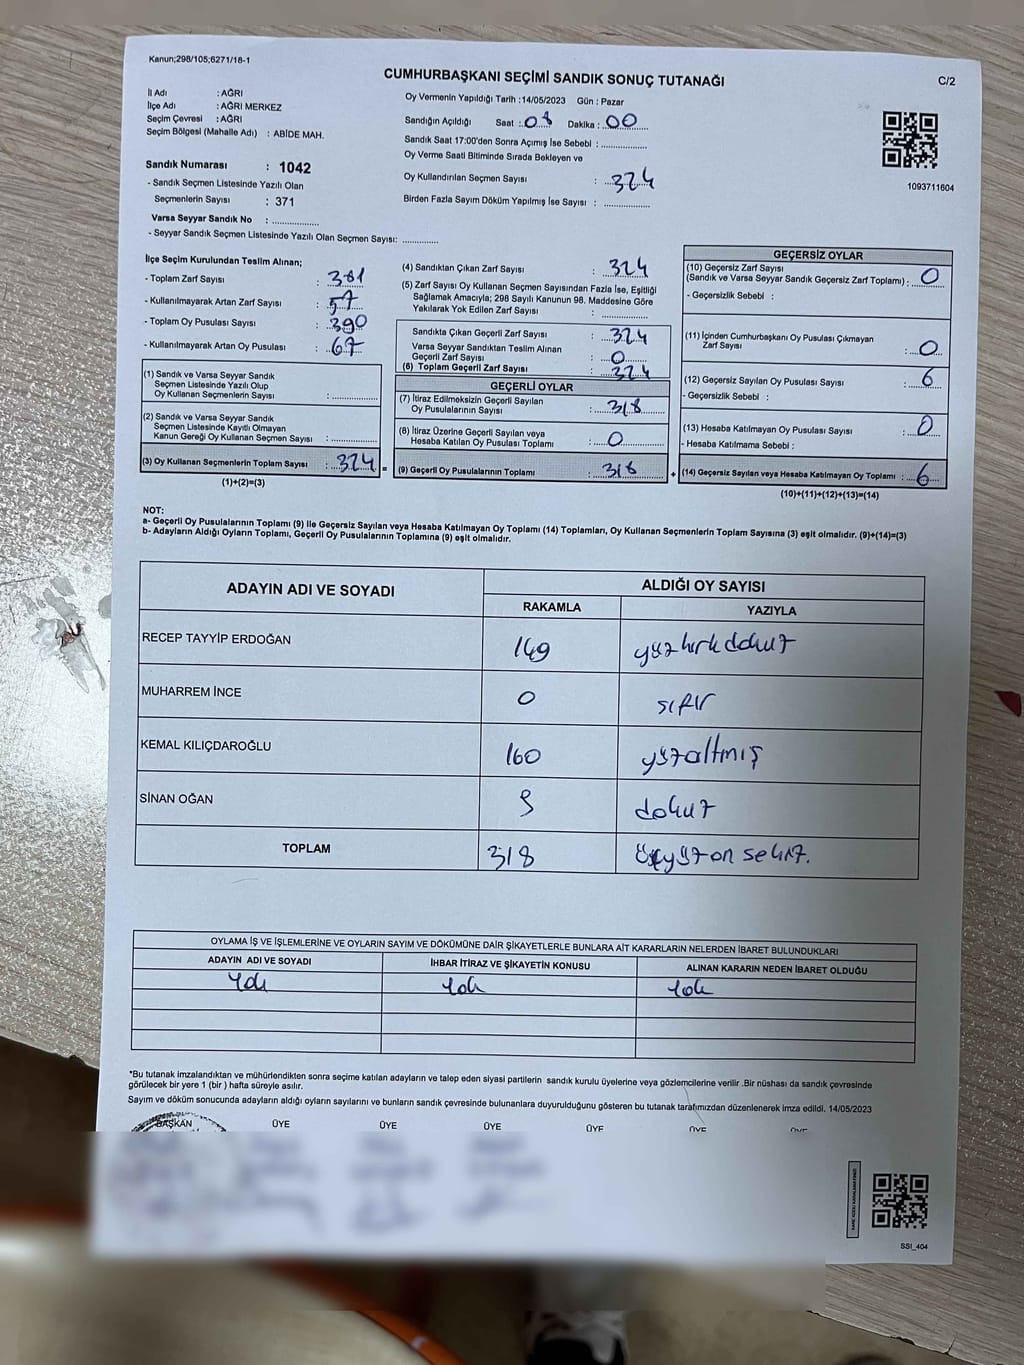 Kanun;298/105;6271/18-1
CUMHURBAŞKANI SEÇİMİ SANDIK SONUÇ TUTANAĞI
C/2
İl Adı : AĞRI
İlçe Adı : AĞRI MERKEZ
Seçim Çevresi : AĞRI
Seçim Bölgesi (Mahalle Adı) : ABİDE MAH.
Sandık Numarası : 1042
- Sandık Seçmen Listesinde Yazılı Olan
Seçmenlerin Sayısı : 371
Varsa Seyyar Sandık No : ..............
- Seyyar Sandık Seçmen Listesinde Yazılı Olan Seçmen Sayısı: ............
Oy Vermenin Yapıldığı Tarih :14/05/2023 Gün : Pazar
Sandığın Açıldığı Saat : 08 Dakika : 00
Sandık Saat 17:00'den Sonra Açımış İse Sebebi : ..............
Oy Verme Saati Bitiminde Sırada Bekleyen ve
Oy Kullandırılan Seçmen Sayısı : 324
Birden Fazla Sayım Döküm Yapılmış İse Sayısı : ..............
1093711604
İlçe Seçim Kurulundan Teslim Alınan;
- Toplam Zarf Sayısı : 381
- Kullanılmayarak Artan Zarf Sayısı : 57
- Toplam Oy Pusulası Sayısı : 390
- Kullanılmayarak Artan Oy Pusulası : 67
(1) Sandık ve Varsa Seyyar Sandık
Seçmen Listesinde Yazılı Olup
Oy Kullanan Seçmenlerin Sayısı : ..............
(2) Sandık ve Varsa Seyyar Sandık
Seçmen Listesinde Kayıtlı Olmayan
Kanun Gereği Oy Kullanan Seçmen Sayısı : ..............
(3) Oy Kullanan Seçmenlerin Toplam Sayısı : 324 =
(1)+(2)=(3)
(4) Sandıktan Çıkan Zarf Sayısı : 324
(5) Zarf Sayısı Oy Kullanan Seçmen Sayısından Fazla İse, Eşitliği
Sağlamak Amacıyla; 298 Sayılı Kanunun 98. Maddesine Göre
Yakılarak Yok Edilen Zarf Sayısı : ..............
Sandıkta Çıkan Geçerli Zarf Sayısı : 324
Varsa Seyyar Sandıktan Teslim Alınan
Geçerli Zarf Sayısı : 0
(6) Toplam Geçerli Zarf Sayısı : 324
GEÇERLİ OYLAR
(7) İtiraz Edilmeksizin Geçerli Sayılan
Oy Pusulalarının Sayısı : 318
(8) İtiraz Üzerine Geçerli Sayılan veya
Hesaba Katılan Oy Pusulası Toplamı : 0
(9) Geçerli Oy Pusulalarının Toplamı : 318 +
GEÇERSİZ OYLAR
(10) Geçersiz Zarf Sayısı
(Sandık ve Varsa Seyyar Sandık Geçersiz Zarf Toplamı) : 0
- Geçersizlik Sebebi :
(11) İçinden Cumhurbaşkanı Oy Pusulası Çıkmayan
Zarf Sayısı : 0
(12) Geçersiz Sayılan Oy Pusulası Sayısı : 6
- Geçersizlik Sebebi :
(13) Hesaba Katılmayan Oy Pusulası Sayısı : 0
- Hesaba Katılmama Sebebi :
(14) Geçersiz Sayılan veya Hesaba Katılmayan Oy Toplamı : 6
(10)+(11)+(12)+(13)=(14)
NOT:
a- Geçerli Oy Pusulalarının Toplamı (9) ile Geçersiz Sayılan veya Hesaba Katılmayan Oy Toplamı (14) Toplamları, Oy Kullanan Seçmenlerin Toplam Sayısına (3) eşit olmalıdır. (9)+(14)=(3)
b- Adayların Aldığı Oyların Toplamı, Geçerli Oy Pusulalarının Toplamına (9) eşit olmalıdır.
ADAYIN ADI VE SOYADI
ALDIĞI OY SAYISI
RAKAMLA YAZIYLA
RECEP TAYYİP ERDOĞAN 149 yüz kırk dokuz
MUHARREM İNCE 0 sıfır
KEMAL KILIÇDAROĞLU 160 yüzaltmış
SİNAN OĞAN 9 dokuz
TOPLAM 318 üçyüz on sekiz.
OYLAMA İŞ VE İŞLEMLERİNE VE OYLARIN SAYIM VE DÖKÜMÜNE DAİR ŞİKAYETLERLE BUNLARA AİT KARARLARIN NELERDEN İBARET BULUNDUKLARI
ADAYIN ADI VE SOYADI İHBAR İTİRAZ VE ŞİKAYETİN KONUSU ALINAN KARARIN NEDEN İBARET OLDUĞU
Yok Yok Yok
*Bu tutanak imzalandıktan ve mühürlendikten sonra seçime katılan adayların ve talep eden siyasi partilerin sandık kurulu üyelerine veya gözlemcilerine verilir .Bir nüshası da sandık çevresinde
görülecek bir yere 1 (bir ) hafta süreyle asılır.
Sayım ve döküm sonucunda adayların aldığı oyların sayılarını ve bunların sandık çevresinde bulunanlara duyurulduğunu gösteren bu tutanak tarafımızdan düzenlenerek imza edildi. 14/05/2023
BAŞKAN ÜYE ÜYE ÜYE ÜYE ÜYE ÜYE
SSI_404